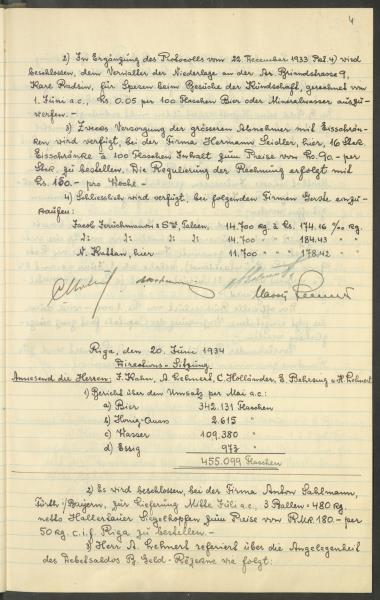 4
2) In Ergänzung des Protocolls vom 22. Dezember 1933 Pkt. 4) wird
beschlossen, dem Verwalter der Niederlage an der Ar. Briandstrasse 9,
Karl Radsin, für Spesen beim Besuche der Kundschaft, gerechnet vom
1. Juni a.c., Ls 0.05 per 100 Flaschen Bier oder Mineralwasser auszu-
werfen. -
3) Zwecks Versorgung der grösseren Abnehmer mit Eisschrän-
ken wird verfügt, bei der Firma Hermann Seidler, hier, 16 Stck.
Eisschränke à 100 Flaschen Inhalt zum Preise von Ls. 90.- per
Stck. zu bestellen. Die Regulierung der Rechnung erfolgt mit
Ls. 180.- pro Woche -
4) Schliesslich wird verfügt, bei folgenden Firmen Gerste einzu-
kaufen:
Jacob Jeruchmanow & SW, Talsen, 14.700 kg. à Ls. 174.16 ‰ kg.
D: D: D: 14.700 " " " 184.43 " "
N. Kattan, hier 11.700 " " " 178.42 " "
Riga, den 20. Juni 1934
Directions-Sitzung
Anwesend die Herren: F. Kahn, A. Lehnert, C. Holländer, E. Behrsug u. H. Lehnert
1) Bericht über den Umsatz per Mai a.c.:
a) Bier 342.131 Flaschen
b) Honig-Quas 2.615 "
c) Wasser 109.380 "
d) Essig 973 "
455.099 Flaschen
2) Es wird beschlossen, bei der Firma Anton Sahlmann,
Fürth i/Bayern, zur Lieferung Mitte Juli a.c., 3 Ballen = 480 kg.
netto Hallertauer Siegelhopfen zum Preise von RMk. 180.- per
50 kg. c.i.f. Riga zu bestellen. -
3) Herr A. Lehnert referiert über die Angelegenheit
des Debetsaldos B. Geld - Rēzekne wie folgt: